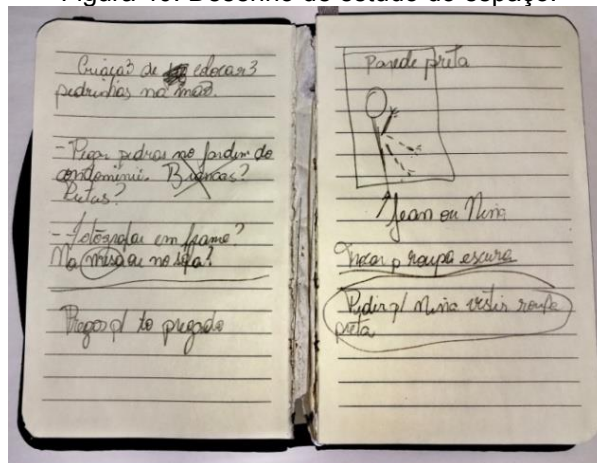 Criaçã3 de colocar3
pedrinhas na mão.
- Pegar pedras no jardim do
condomínio. Brancas?
Pretas?
- Fotografar em frame?
Na mesa ou no sofá?
Pregar p/ to pregado
Parede preta
Jean ou Nina
Trocar p roupa escura
Pedir p/ Nina vestir roupa
preta